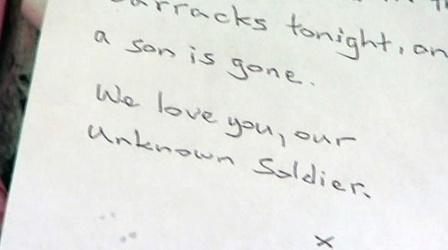 tonight,
a son is gone.
We love you, our
Unknown Soldier.
x